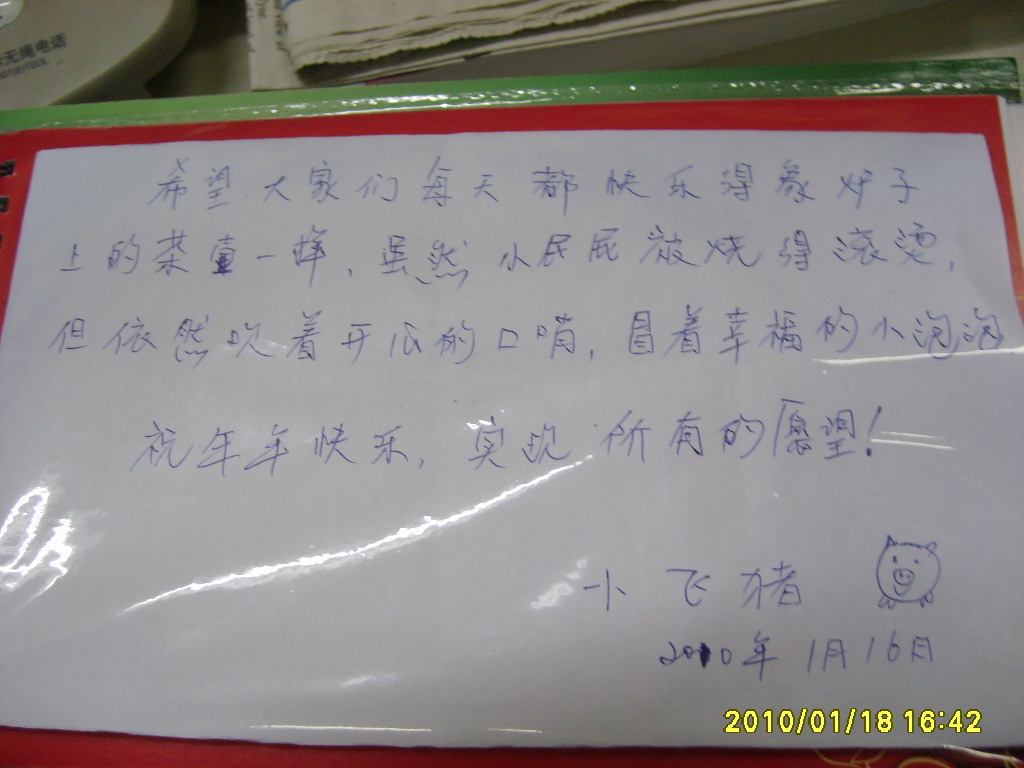 无绳电话
希望大家们每天都快乐得象炉子
上的茶壶一样，虽然小屁屁被烧得滚烫，
但依然吹着开心的口哨，冒着幸福的小泡泡
祝年年快乐，实现所有的愿望！
小飞猪
2010年1月16月
2010/01/18 16:42